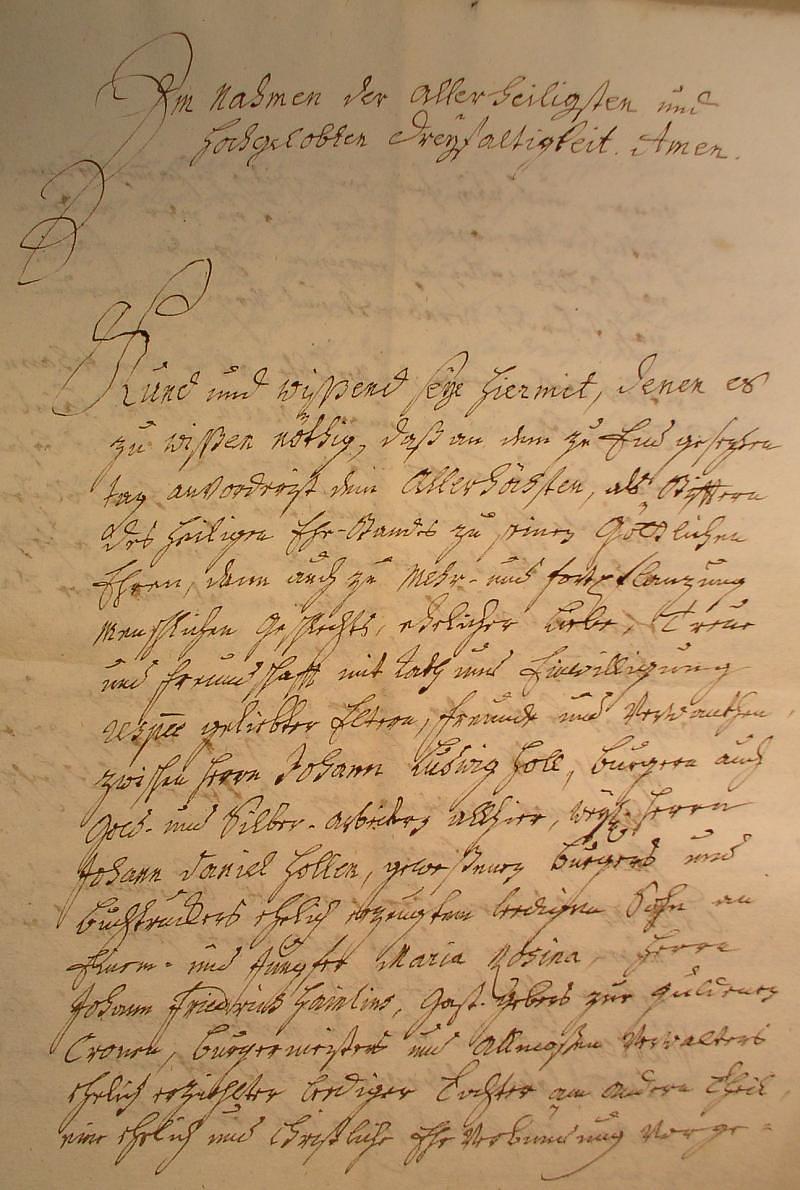 Im Nahmen der allerheiligsten und
hochgelobten Dreyfaltigkeit. Amen.
Kund und wißend seye hiermit, denen es
zu wißen nöthig, daß an dem zu End gesezten
tag anvorderist dem Allerhöchsten, als Stifftern
des heiligen Ehe-Standes zu seinen Göttlichen
Ehren, dann auch zu Mehr- und fortpflanzung
Menschlichen Geschlechts, ehelicher Liebe, Treue
und freundschafft mit Rath und Einwilligung
geliebter Eltern, freunde und Verwanthen,
zwischen Herrn Johann Ludwig Holl, burgern auch
Gold- und Silber-arbeitern allhier, weyl. Herrn
Johann Daniel Hollen, geweßenen burgers und
buchtruckers ehelich erzeugtem ledigen Sohn an
Einem- und Jungfer Maria Rosina, Herrn
Johann Friedrich Hainlins, Gast-Gebers zur guldenen
Cronen, burgermeisters und Allmoßen Verwalters
ehelich erziehlter lediger Tochter am andern Theil,
eine ehelich und Christliche Ehe Verbündnung vorge=